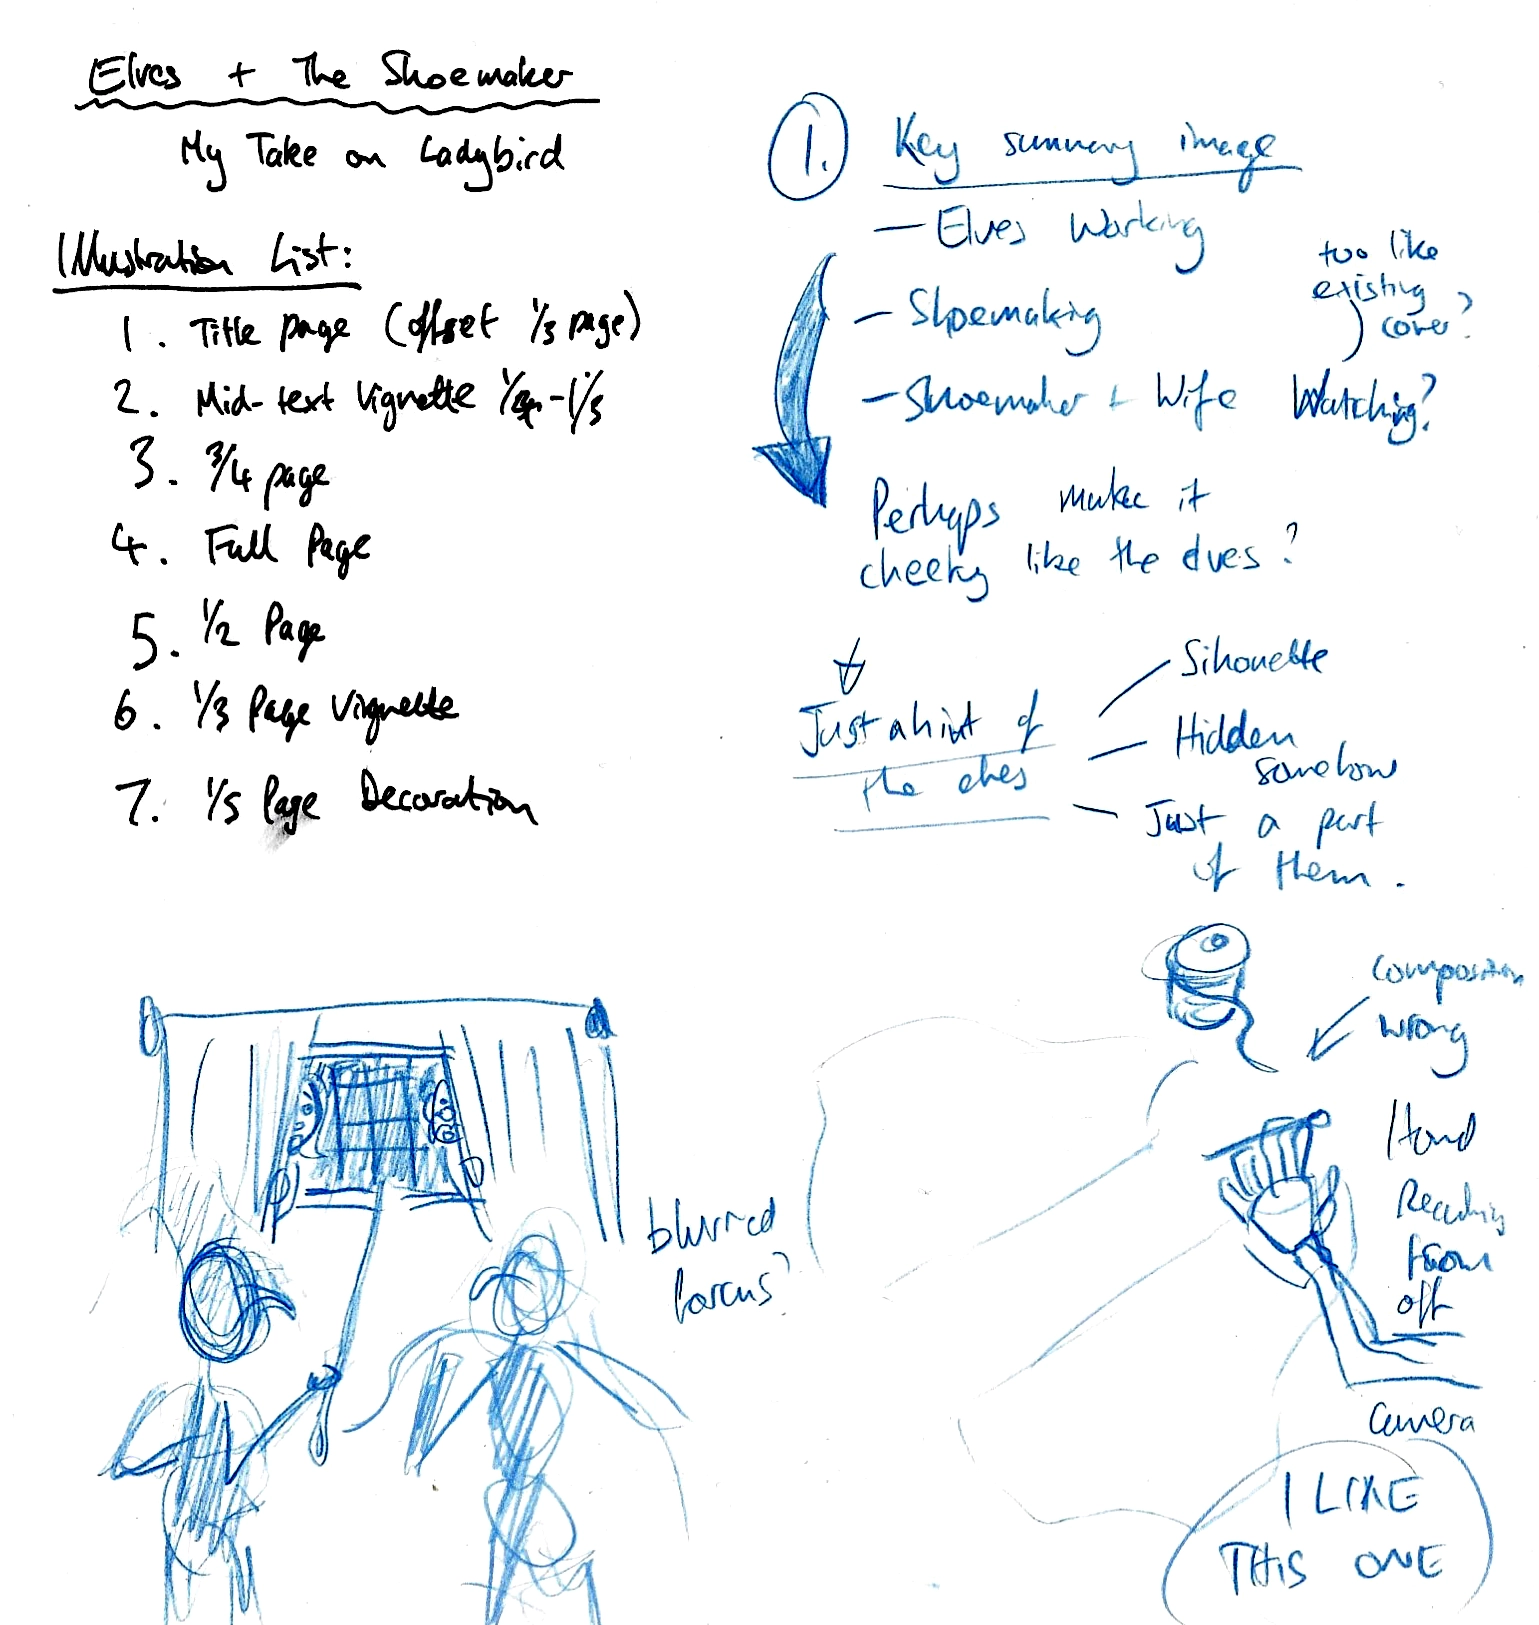 Elves + The Shoemaker
My Take on Ladybird
Illustration List:
1. Title page (offset 1/3 page)
2. Mid-text Vignette - 1/3
3. 3/4 page
4. Full Page
5. 1/2 Page
6. 1/3 Page Vignette
7. 1/5 Page Decoration
1. Key summary image
- Elves Working
- Shoemaking
- Shoemaker + Wife Watching?
too like
existing
cover?
Perhaps make it
cheeky like the elves?
Just a hint of
the elves
Sihouette
Hidden
somehow
Just a part
of them.
composition
wrong
Hand
Reaching
from
off
camera
I LIKE
THIS ONE
blurred
focus?